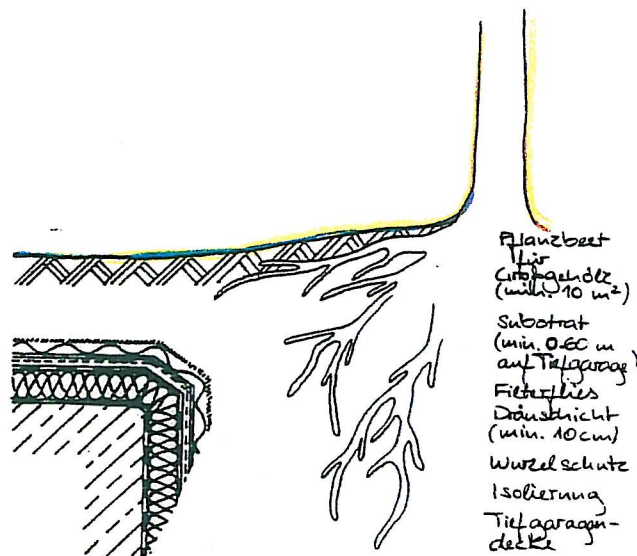 Pflanzbeet
für
Großgehölz
(min. 10 m²)
Substrat
(min. 0.60 m
auf Tiefgarage)
Filterflies
Dränschicht
(min. 10 cm)
Wurzelschutz
Isolierung
Tiefgaragen-
decke